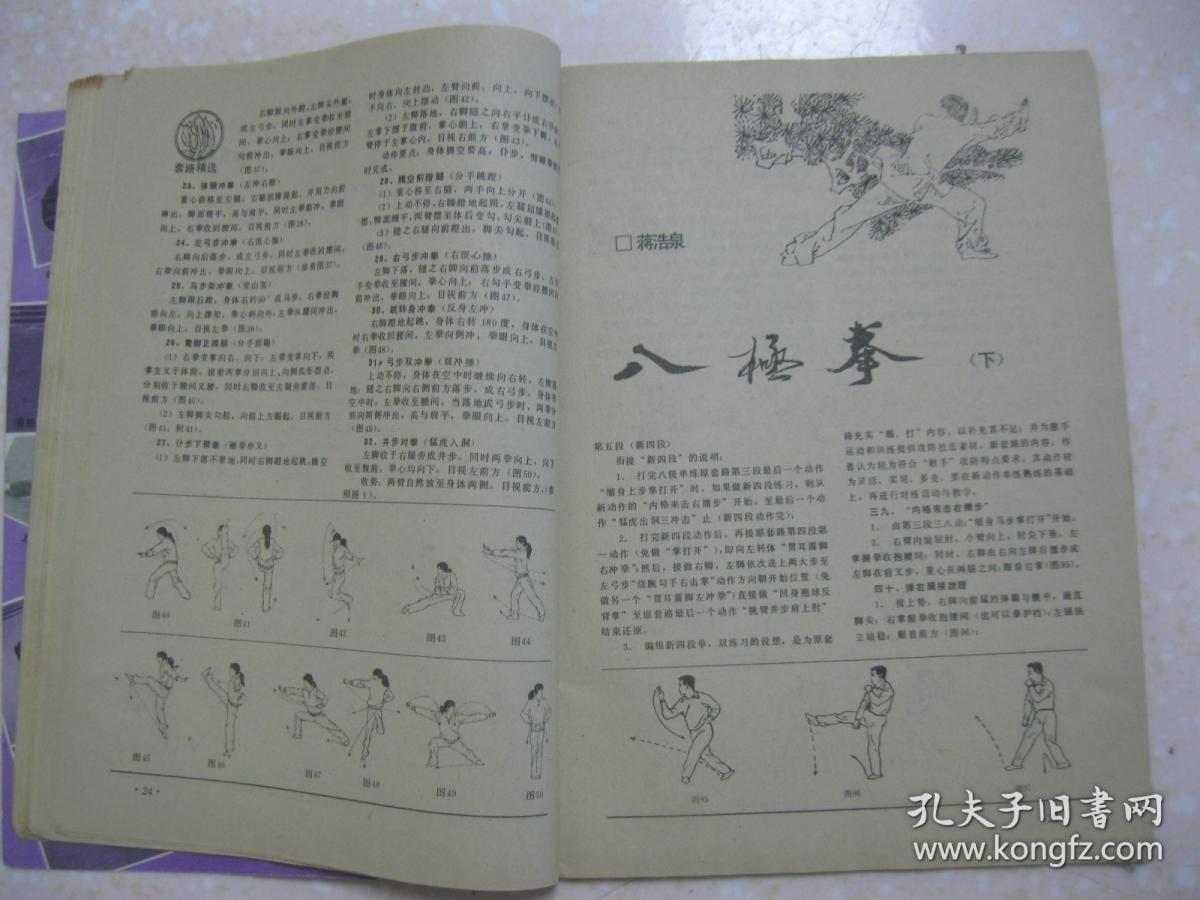 套路精选
右脚跟向外蹬,左脚尖外撇,
成左弓步。同时左掌变拳收至腰
间,拳心向上,右掌变拳经腰间
向前冲出,拳眼向上。目视前方
(图37)。
23、弹腿冲拳(左冲右蹬)
重心前移至左腿,右腿屈膝提起,并用力向前
弹出,脚面绷平,高与肩平。同时左拳前冲,拳眼
向上,右拳收回腰间。目视前方(图38)。
24、左弓步冲拳(右顶心捶)
右脚向后落步,成左弓步。同时左拳收回腰间,
右拳向前冲出,拳眼向上。目视前方(参看图37)。
25、马步架冲拳(坐山架)
左脚跟后蹬,身体右转90°成马步。右拳经胸
前向左、向上撑架,拳心斜向外;左拳从腰间冲出,
拳眼向上。目视左拳(图39)。
(1)右拳变掌向右、向下;左拳变掌向下,两
掌交叉于体前。接着两掌分别向上、向侧弧形摆动,
分别收于腰间叉腰。同时右脚收至左腿旁震落。目
视前方(图40)。
(2)左脚脚尖勾起,向前上方踢起。目视前方
(图41、附41)。
27、仆步下劈拳
(1)左脚下落不着地,同时右脚蹬地起跳,腾空
时身体向左转动,左臂向前、向上、向下摆动,
手向右、向上摆动(图42)。
(2)左脚落地,右脚随之向右平仆成右仆步
左掌下摆于腹前,掌心朝上,右掌变拳下砸,
臂停于左掌心内。目视右前方(图43)。
动作要点:身体腾空要高,仆步,劈砸拳要
时完成。
28、腾空前蹬腿(分手跳蹬)
(1)重心移至右腿,两手向上分开(图44)。
(2)上动不停,右脚蹬地起跳,左腿屈膝摆起
摆,脚面绷平,两臂摆至体后变勾,勾尖朝上(图45)。
(3)随之右腿向前蹬出,脚尖勾起。目视前方
(图46)。
29、右弓步冲拳(右顶心捶)
左脚下落,随之右脚向前落步成右弓步。左勾
手变拳收至腰间,拳心向上;右勾手变拳经腰间
前冲出,拳眼向上。目视前方(图47)。
30、跳转身冲拳(反身左冲)
右脚蹬地起跳,身体右转180度,身体在空中
时右拳收回腰间,左拳向侧冲,拳眼向上。目视左
拳(图48)。
31、弓步双冲拳(双冲捶)
上动不停,身体在空中时继续向右转,左脚落
地;随之右脚向右侧前方落步,成右弓步。身体在
空中时,左拳收至腰间,当落地成弓步时,两拳分
别向两侧冲出,高与肩平,拳眼向上。目视左前方
(图49)。
32、并步对拳(猛虎入洞)
左脚收于右腿旁成并步。同时两拳向上,向下
收至腹前,拳心均向下。目视左前方(图50)。
收势:两臂自然放至身体两侧。目视前方,(参
照图1)。
图40
图41
图42
图43
图44
图45
图46
图47
图48
图49
图50
·24·
□ 蒋浩泉
八極拳
(下)
第五段(新四段)
衔接“新四段”的说明:
1. 打完八极单练原套路第三段最后一个动作
“缩身上步掌打开”时,如果做新四段练习,则从
新动作的“内格来击右撤步”开始,至最后一个动
作“猛虎出洞三冲击”止(新四段动作完);
2. 打完新四段动作后,再接原套路第四段第
一动作(免做“掌打开”),即向左转体“贯耳震脚
右冲拳”;然后,接做右脚,左脚依次连上两大步至
左弓步“绕腕勾手右击掌”动作方向朝开始位置(免
做另一个“贯耳震脚左冲拳”)直接做“回身抱球反
背掌”至原套路最后一个动作“挑臂并步肩上肘”
结束还原。
3. 编组新四段单、双练习的设想,是为原套
路充实“踢、打”内容,以补充其不足;并为散手
运动和训练提供攻防技击素材。新套路的内容,作
者认为较为符合“散手”攻防特点要求,其动作较
为灵活、实用、多变。要在新动作单练熟练的基础
上,再进行对练活动与教学。
三九、“内格来击右撤步”
1. 由第三段三八动:“缩身马步掌打开”开始。
2. 右臂内旋屈肘,小臂向上,肘尖下垂,左
掌握拳收抱腰间;同时,右脚由右向左脚后撤步成
左脚在前叉步,重心在两腿之间;眼看右掌(图95)。
四十、弹右腿接放蹬
1. 接上势,右脚向前猛烈弹踢与腰平,绷直
脚尖;右掌握拳收抱腰间(也可以拳护裆);左腿独
立站稳;眼看前方(图96);
图95
图96
孔夫子旧书网
www.kongfz.com